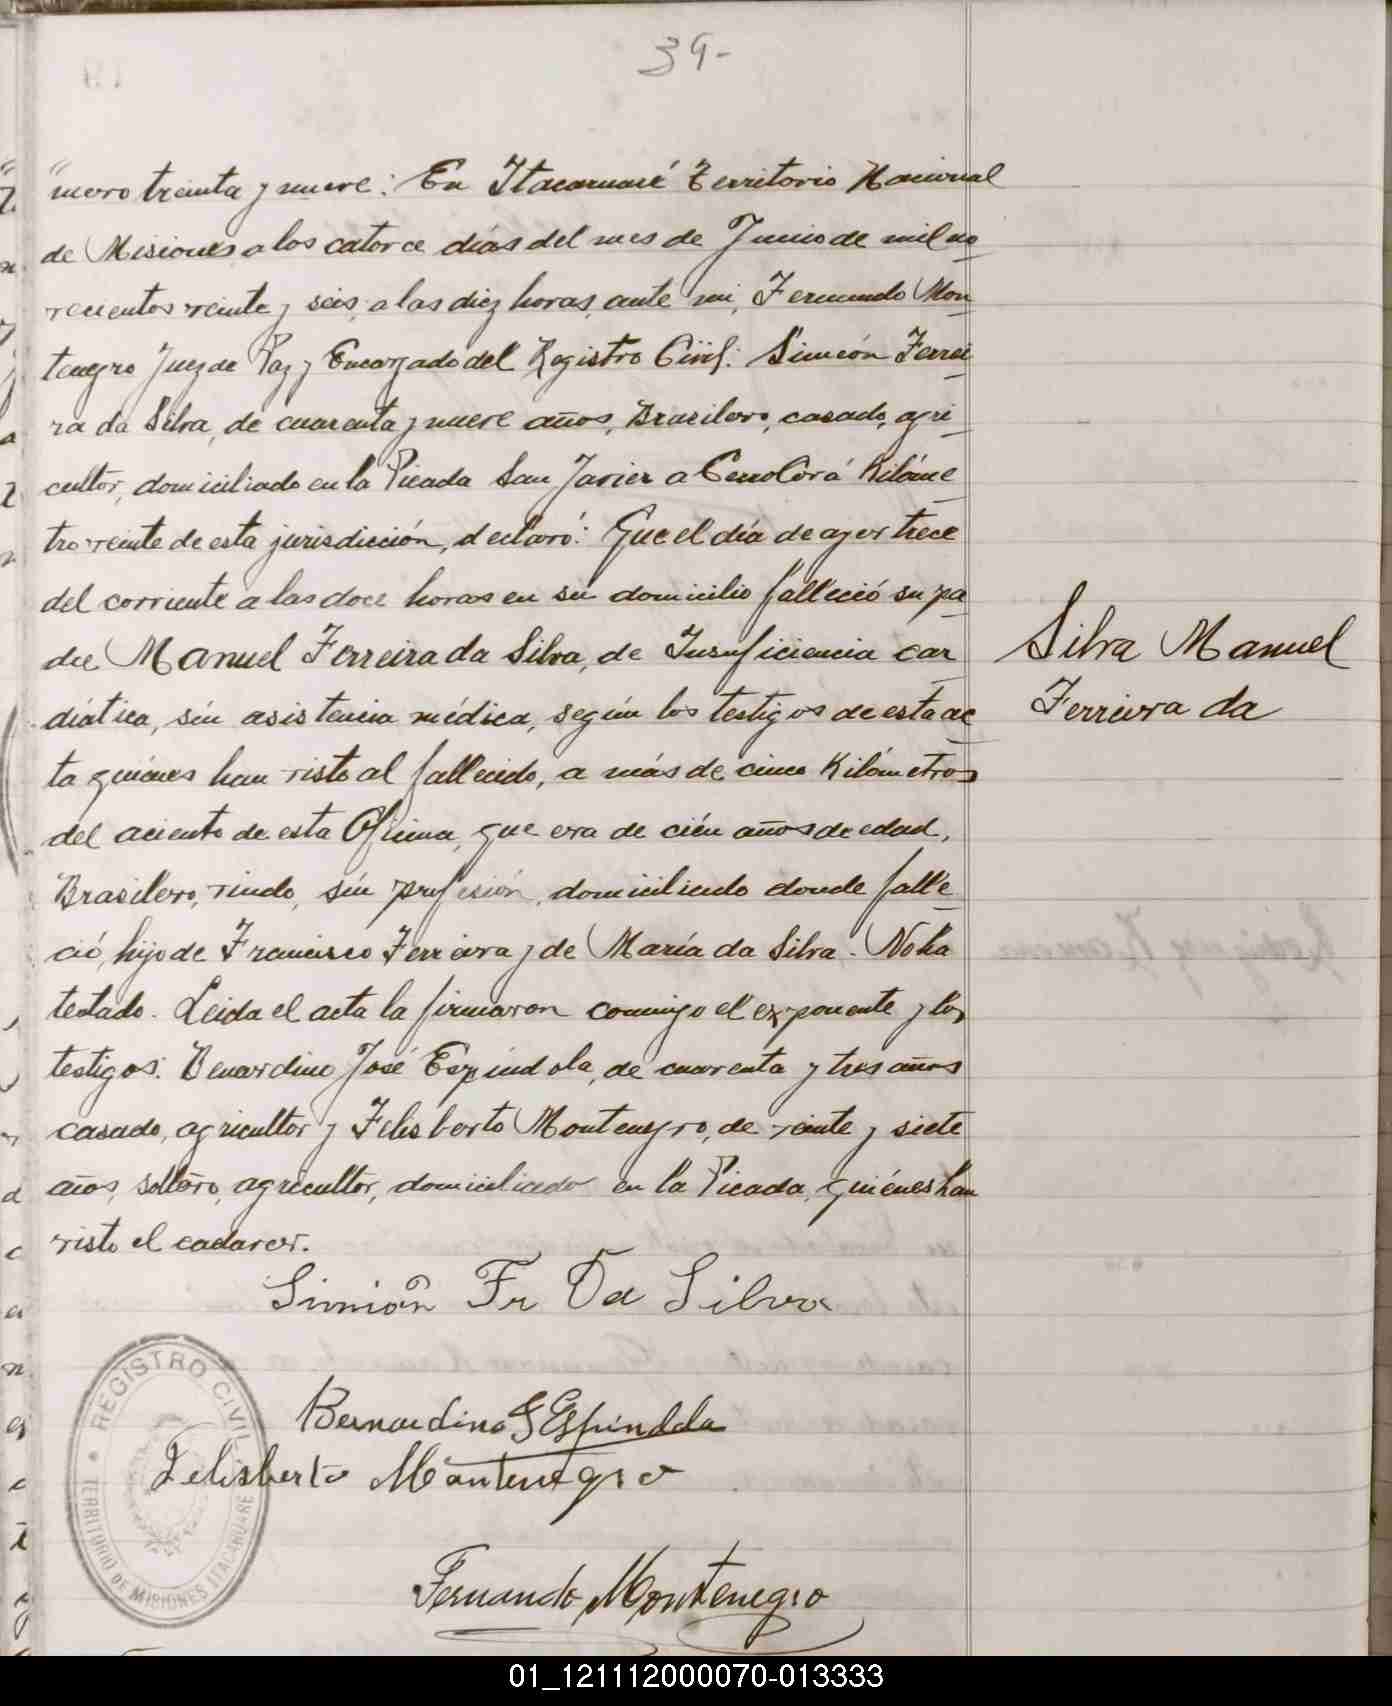 39-
"mero treinta y nueve: En Itacaruaré Territorio Nacional
de Misiones a los catorce días del mes de Junio de mil no_
vecientos veinte y seis, a las diez horas, ante mi, Fernando Mon_
tenegro Juez de Paz y Encargado del Registro Civil: Simeón Ferrei_
ra da Silva, de cuarenta y nueve años, Brasilero, casado, agri_
cultor, domiciliado en la Picada San Javier a Cerro Corá Kilóme_
tro veinte de esta jurisdicción, declaró: Que el día de ayer trece
del corriente a las doce horas en su domicilio falleció su pa_
dre Manuel Ferreira da Silva, de Insuficiencia car_
diática, sin asistencia médica, según los testigos de esta ac_
ta quiénes han visto al fallecido, a más de cinco Kilómetros
del aciento de esta Oficina, que era de cién años de edad,
Brasilero, viudo, sin profesión, domiciliado donde falle_
ció, hijo de Francisco Ferreira y de María da Silva. No ha
testado. Leida el acta la firmaron comigo el exponente y los
testigos: Benardino José Espíndola, de cuarenta y tres años
casado, agricultor y Felisberto Montenegro, de veinte y siete
años, soltero, agricultor, domiciliado en la Picada, quiénes han
visto el cadaver.
Silva Manuel
Ferreira da
Simión Fr Da Silva
Bernardino J Espindola
Felisberto Montenegro
Fernando Montenegro
REGISTRO CIVIL
TERRITORIO DE MISIONES ITACARUARE
01_121112000070-013333